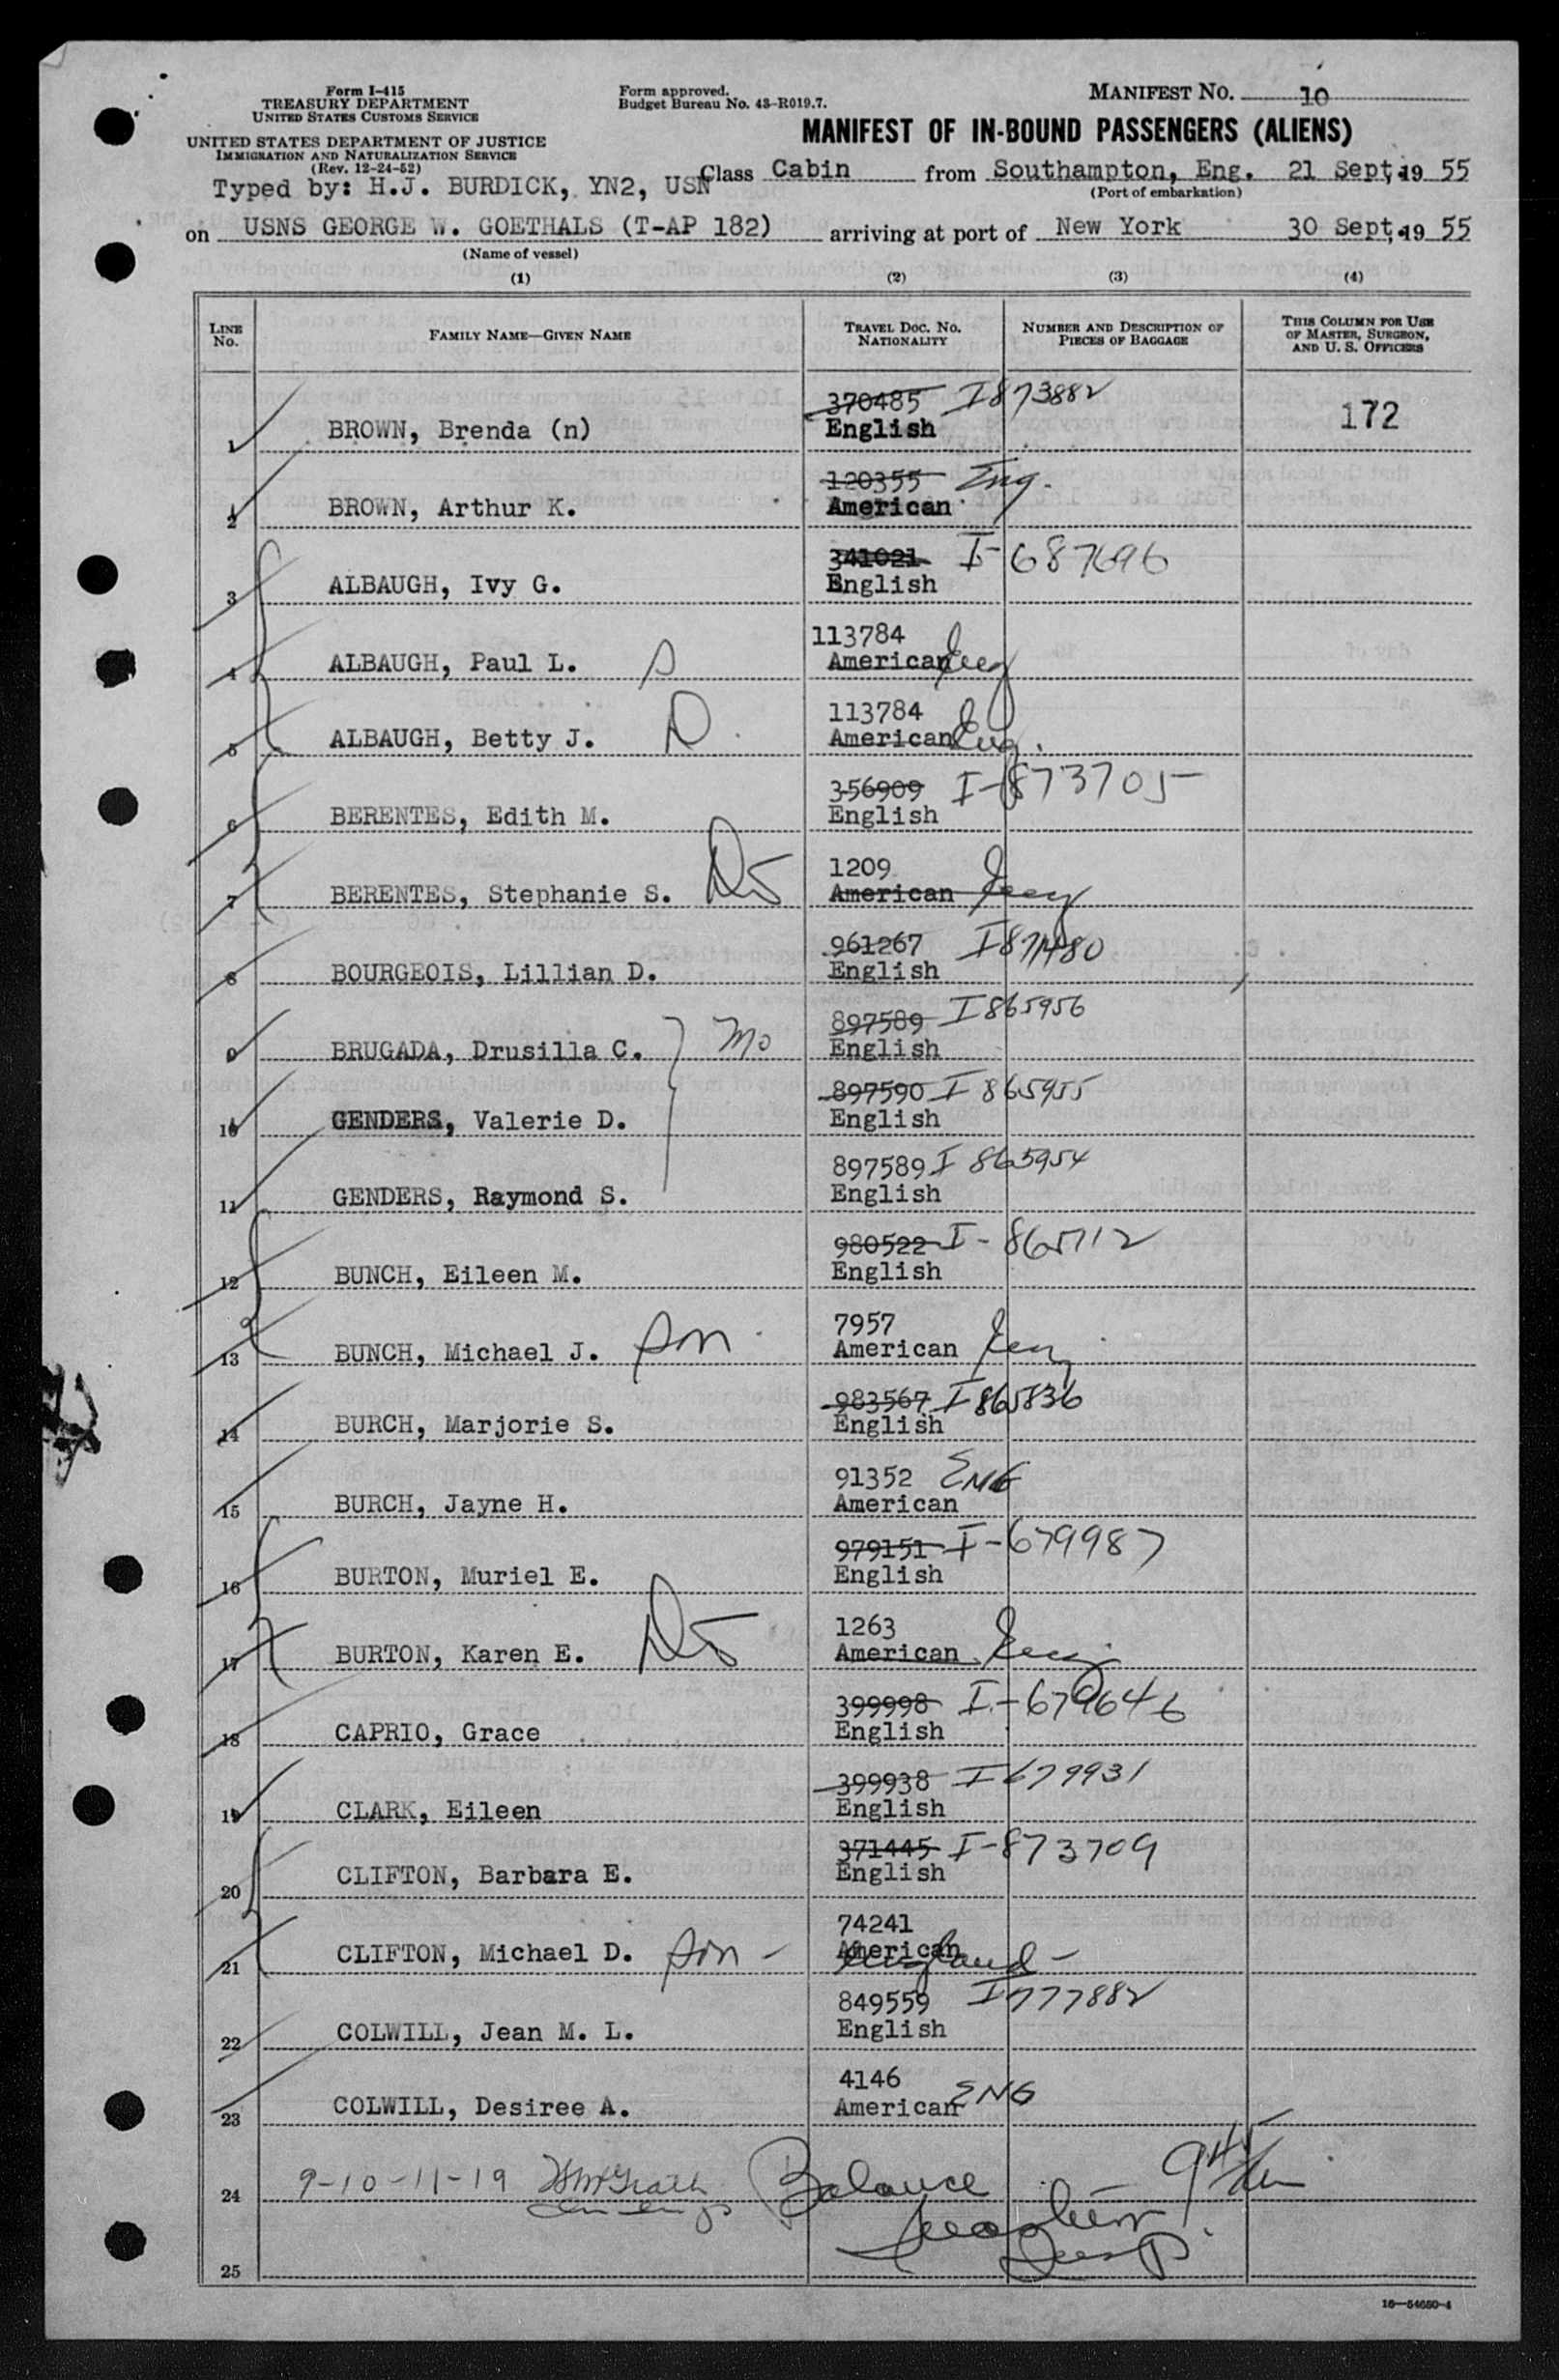 Form I-415
TREASURY DEPARTMENT
UNITED STATES CUSTOMS SERVICE
UNITED STATES DEPARTMENT OF JUSTICE
IMMIGRATION AND NATURALIZATION SERVICE
(Rev. 12-24-52)
Typed by: H.J. BURDICK, YN2, USN
Form approved.
Budget Bureau No. 43-R019.7.
MANIFEST NO. 10
MANIFEST OF IN-BOUND PASSENGERS (ALIENS)
Class Cabin from Southampton, Eng. 21 Sept, 19 55
(Port of embarkation)
on USNS GEORGE W. GOETHALS (T-AP 182) arriving at port of New York 30 Sept, 19 55
(Name of vessel)
(1) (2) (3) (4)
LINE NO. FAMILY NAME—GIVEN NAME TRAVEL DOC. NO. NATIONALITY NUMBER AND DESCRIPTION OF PIECES OF BAGGAGE THIS COLUMN FOR USE OF MASTER, SURGEON, AND U. S. OFFICERS
370485 I873882
1 BROWN, Brenda (n) English 172
120355 Eng.
2 BROWN, Arthur K. American
341021 I-687696
3 ALBAUGH, Ivy G. English
113784
4 ALBAUGH, Paul L. S American Eng
113784
5 ALBAUGH, Betty J. D. American Eng.
356909 I-873705
6 BERENTES, Edith M. English
1209
7 BERENTES, Stephanie S. American Eng
961267 I871480
8 BOURGEOIS, Lillian D. English
897589 I865956
9 BRUGADA, Drusilla C. Mo English
897590 I865955
10 GENDERS, Valerie D. English
897589 I865954
11 GENDERS, Raymond S. English
980522 I-865712
12 BUNCH, Eileen M. English
7957
13 BUNCH, Michael J. Son American Eng
983567 I865836
14 BURCH, Marjorie S. English
91352 ENG
15 BURCH, Jayne H. American
979151 I-679987
16 BURTON, Muriel E. English
1263
17 BURTON, Karen E. American Eng
399998 I-679646
18 CAPRIO, Grace English
399938 I679931
19 CLARK, Eileen English
371445 I-873709
20 CLIFTON, Barbara E. English
74241
21 CLIFTON, Michael D. Son - American England -
849559 I777882
22 COLWILL, Jean M. L. English
4146
23 COLWILL, Desiree A. American ENG
24 9-10-11-19 Balance
25
16—54650-4